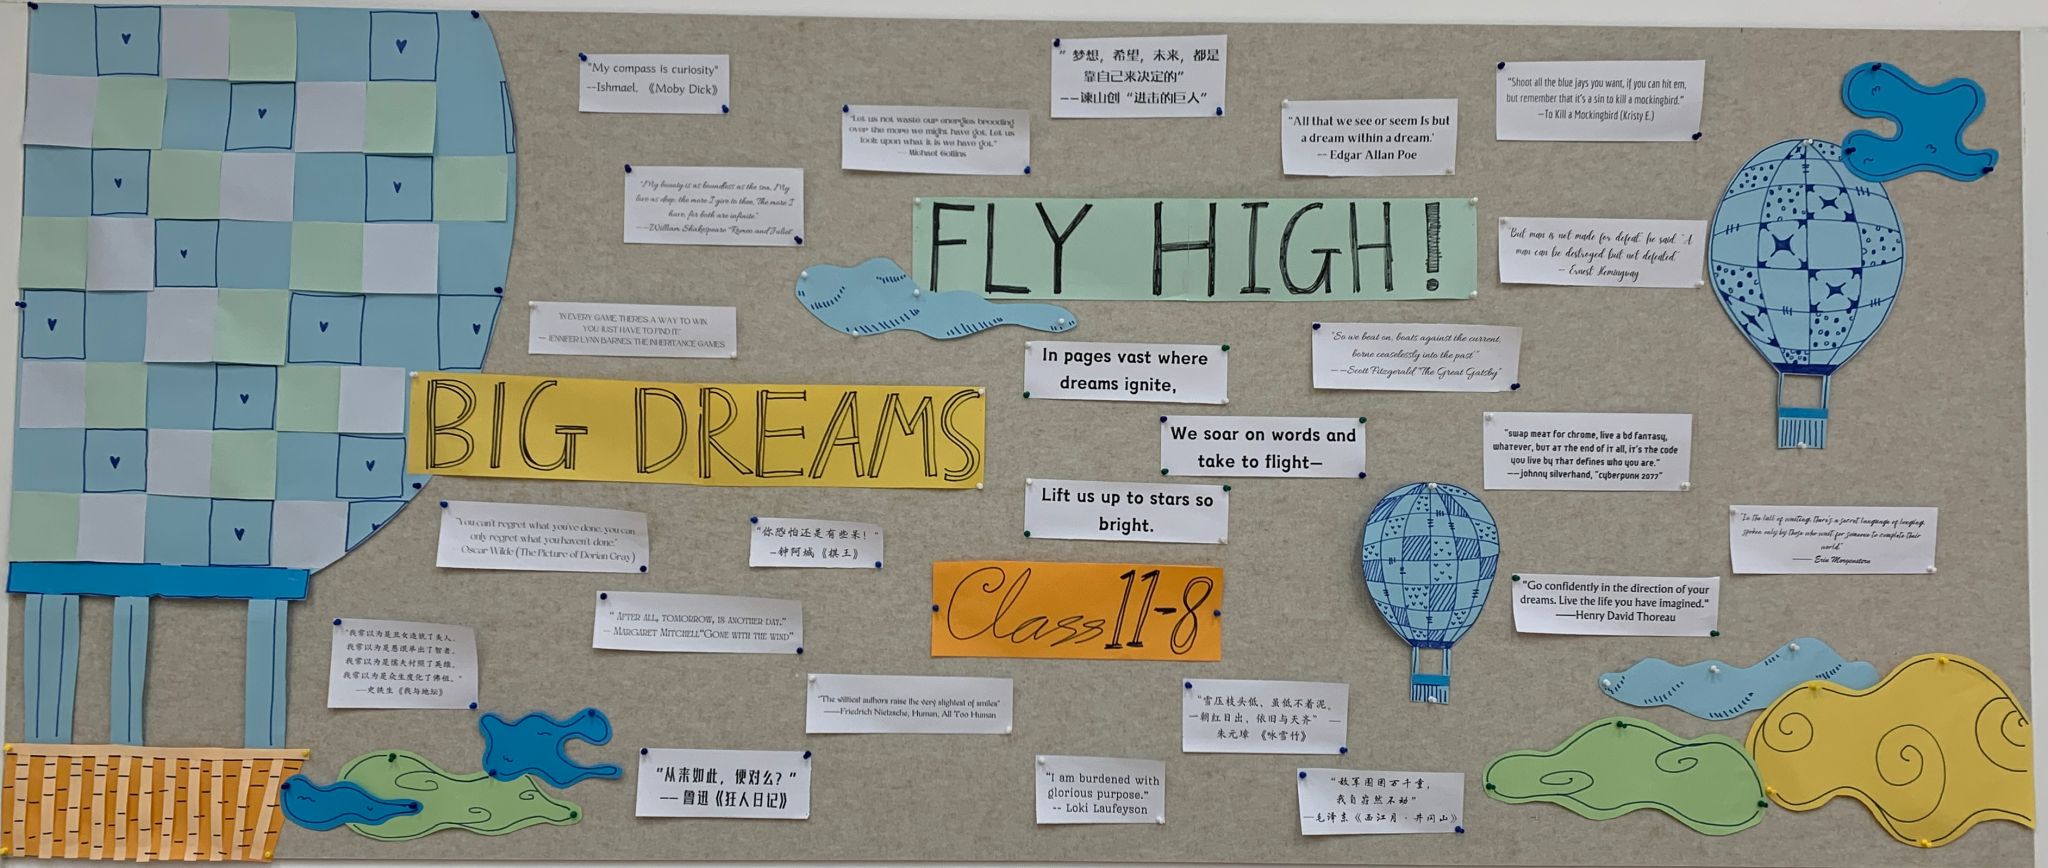 "My compass is curiosity"
--Ishmael, 《Moby Dick》
" 梦想，希望，未来，都是
靠自己来决定的"
——谏山创 "进击的巨人"
"Let us not waste our energies brooding
over the more we might have got. Let us
look upon what it is we have got."
—Michael Collins
"All that we see or seem is but
a dream within a dream.'
-- Edgar Allan Poe
"Shoot all the blue jays you want, if you can hit em,
but remember that it's a sin to kill a mockingbird."
—To Kill a Mockingbird (Kristy E.)
"My bounty is as boundless as the sea, My
love as deep, the more I give to thee, The more I
have, for both are infinite."
——William Shakespeare "Romeo and Juliet"
FLY HIGH!
"But man is not made for defeat" he said. "A
man can be destroyed but not defeated"
— Ernest Hemingway
"IN EVERY GAME THERE'S A WAY TO WIN
YOU JUST HAVE TO FIND IT."
— JENNIFER LYNN BARNES, THE INHERITANCE GAMES
"So we beat on, boats against the current,
borne ceaselessly into the past"
——Scott Fitzgerald "The Great Gatsby"
In pages vast where
dreams ignite,
BIG DREAMS
We soar on words and
take to flight—
"swap meat for chrome, live a bd fantasy,
whatever, but at the end of it all, it's the code
you live by that defines who you are."
——johnny silverhand, "cyberpunk 2077"
Lift us up to stars so
bright.
"You can't regret what you've done, you can
only regret what you haven't done."
Oscar Wilde (The Picture of Dorian Gray)
"你恐怕还是有些呆！"
—钟阿城《棋王》
"In the lull of waiting, there's a secret language of longing,
spoken only by those who wait for someone to complete their
world."
—— Erin Morgenstern
Class 11-8
"Go confidently in the direction of your
dreams. Live the life you have imagined."
——Henry David Thoreau
" AFTER ALL, TOMORROW, IS ANOTHER DAY."
— MARGARET MITCHELL"GONE WITH THE WIND"
"我常以为是丑女造就了美人。
我常以为是愚氓举出了智者。
我常以为是懦夫衬照了英雄。
我常以为是众生度化了佛祖。"
—史铁生《我与地坛》
"The wittiest authors raise the very slightest of smiles"
——Friedrich Nietzsche, Human, All Too Human
"雪压枝头低，虽低不着泥。
一朝红日出，依旧与天齐" —
朱元璋 《咏雪竹》
"从来如此，便对么？"
—— 鲁迅《狂人日记》
"I am burdened with
glorious purpose."
-- Loki Laufeyson
"敌军围困万千重，
我自岿然不动"
—毛泽东《西江月·井冈山》